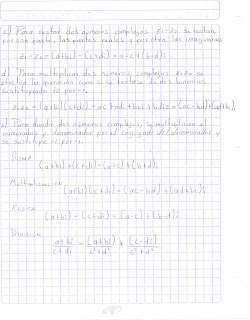 c) Para restar dos números complejos, z1-z2 se restan
por una parte, las partes reales y por otra las imaginarias
z1-z2=(a+bi)-(c+di)=a-c+(b-d)i
d) Para multiplicar dos números complejos z1z2 se
efectúa la operación como si se tratase de dos binomios
sustituyendo i² por -1.
z1z2=(a+bi)(c+di)=ac+adi+bci+bdi²=(ac-bd)+(ad+bc)i
e) Para dividir dos números complejos, se multiplican el
numerador y denominador por el conjugado del denominador y
se sustituye i² por -1.
Suma
(a+bi)+(c+di)=(a+c)+(b+d)i
Multiplicación
(a+bi)(c+di)=(ac-bd)+(ad+bc)i
Resta
(a+bi)-(c+di)=(a-c)+(b-d)i
División
a+bi
c+di